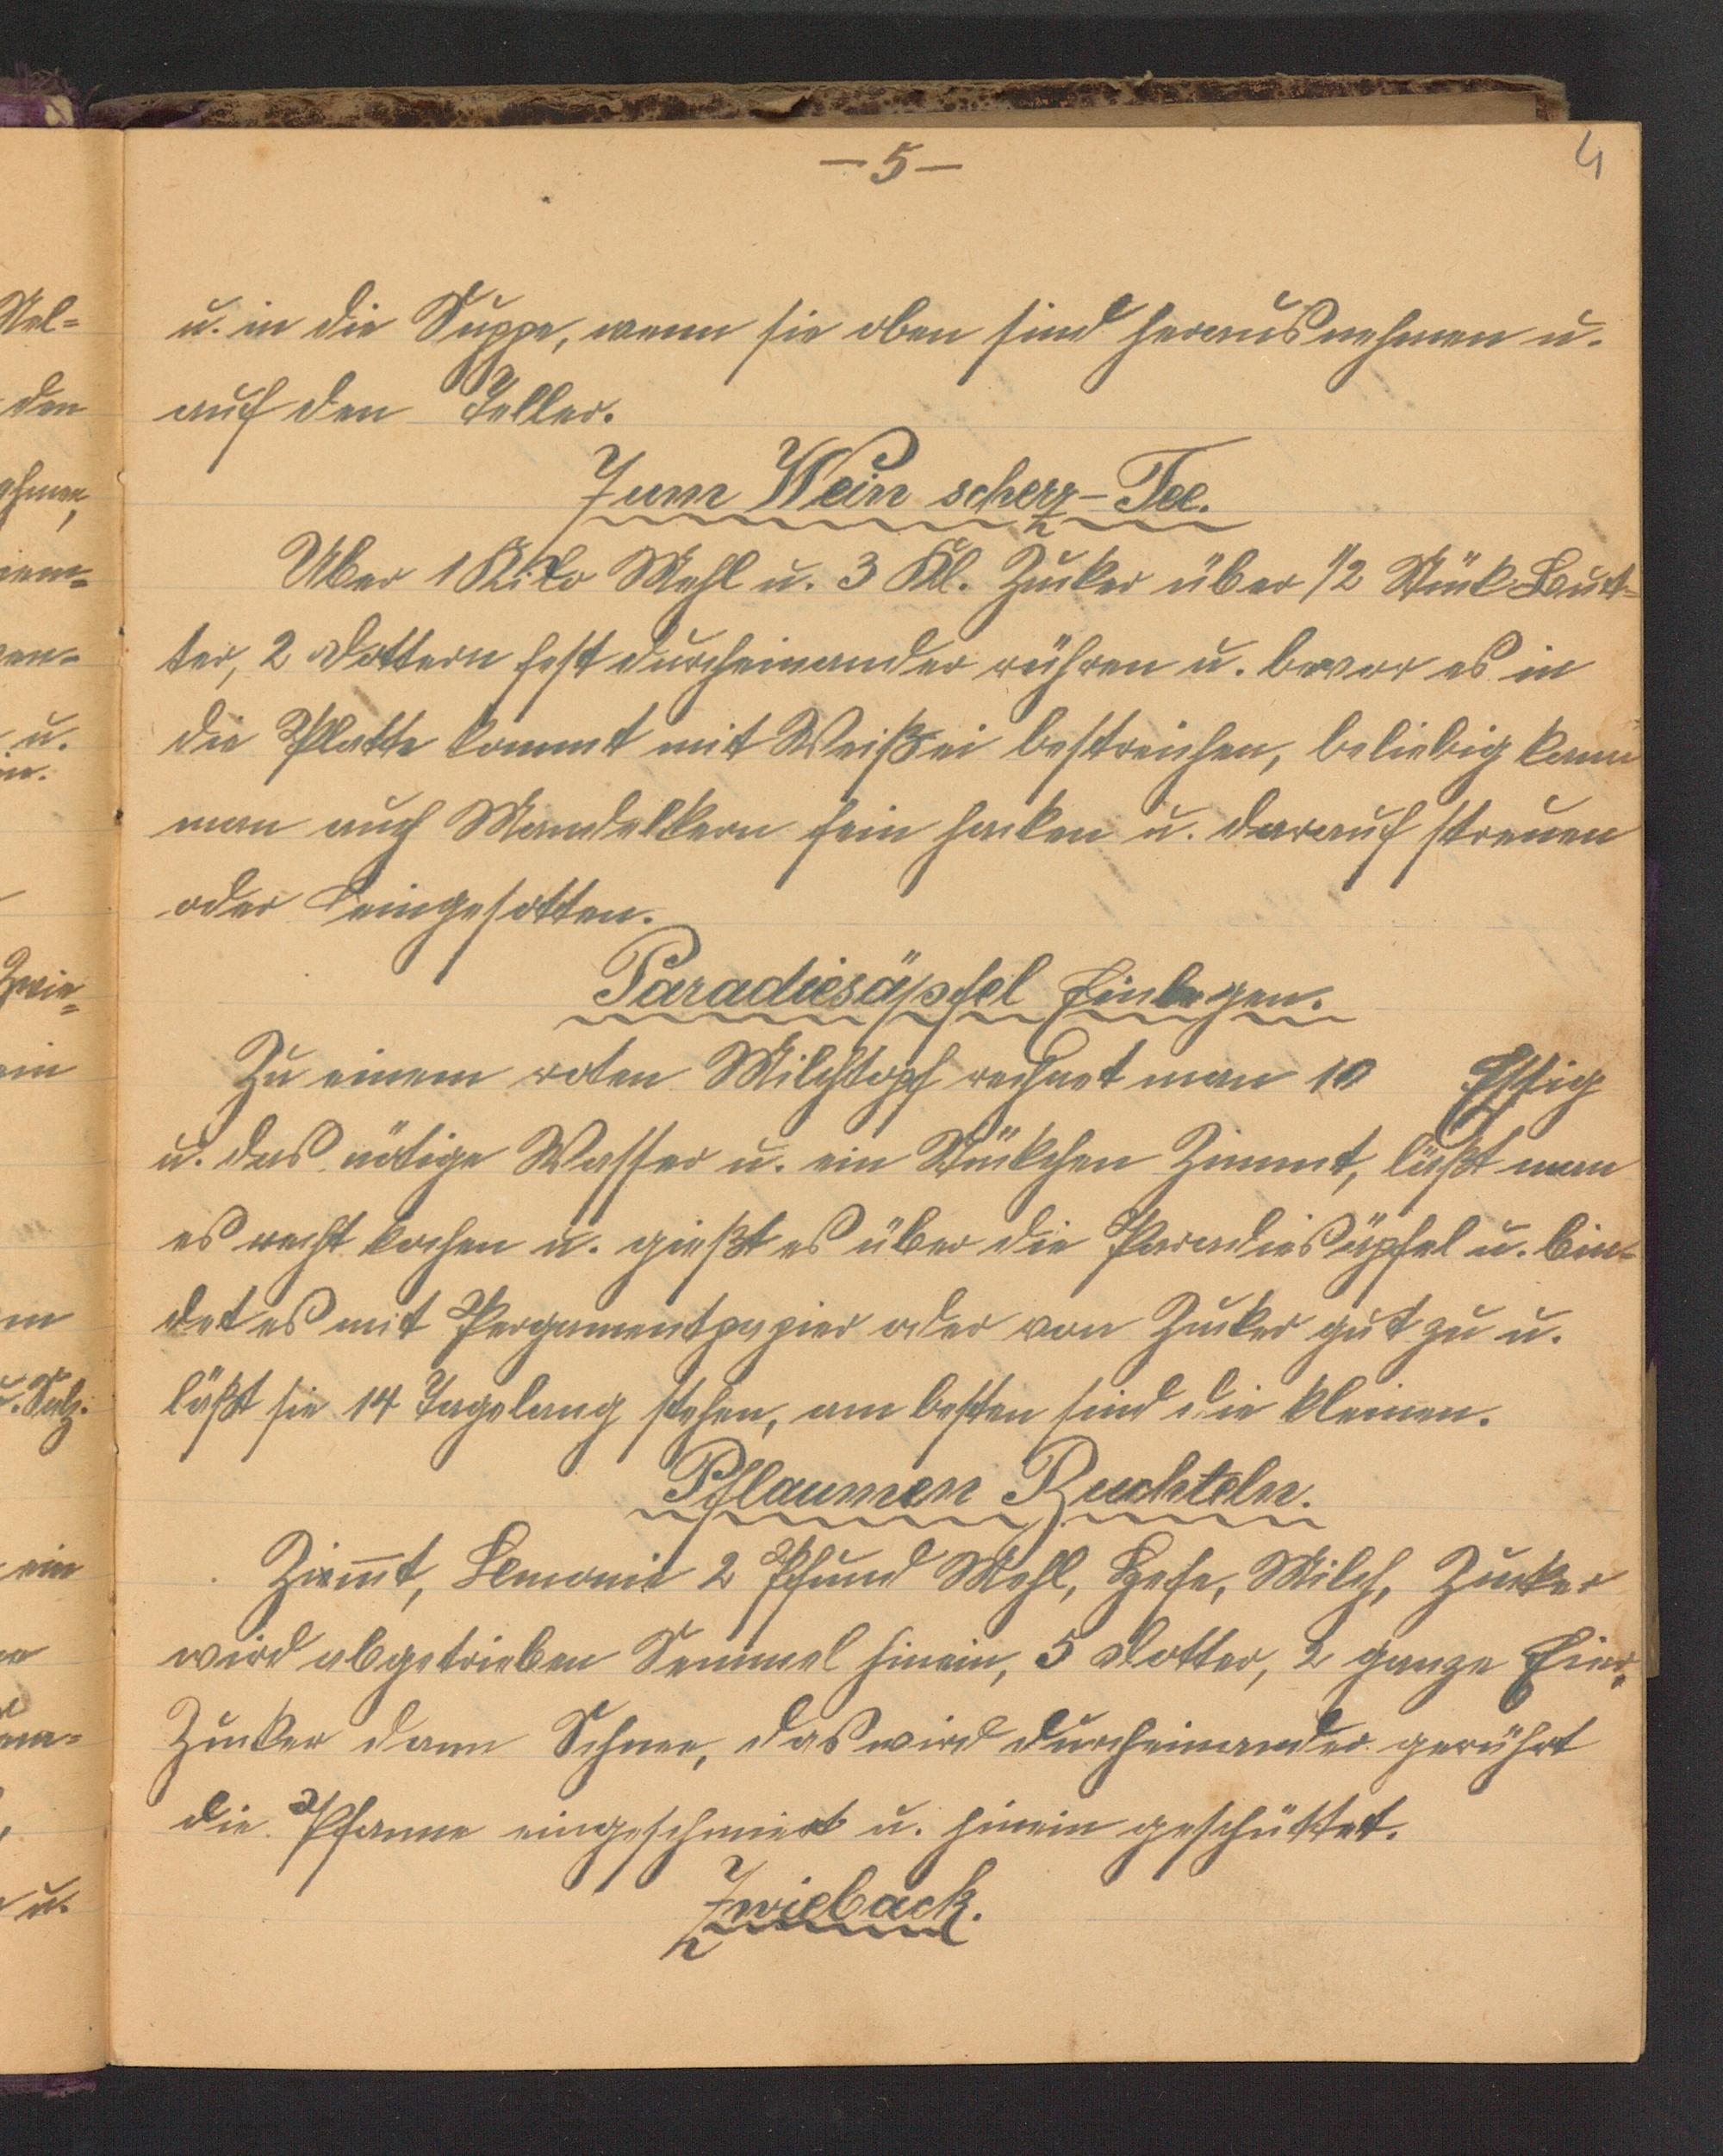 - 5 -
4
u. in die Suppe, wenn sie oben sind herausnehmen u.
auf den Teller.
Zum Wein scherz-Tee.
Über 1 Kilo Mehl u. 3 Kl. Zucker über 1/2 Stück But-
ter, 2 Dottern fest durcheinander rühren u. bevor es in
die Platte kommt mit Weißei bestreichen, beliebig kann
man auch Mandelkern fein hacken u. darauf streuen
oder eingesotten.
Paradiesäpfel Einlegen.
Zu einem roten Milchtopf rechnet man 10 Essig
u. das nötige Wasser u. ein Stückchen Zimmt, läßt man
es recht kochen u. gießt es über die Paradiesäpfel u. bin-
det es mit Pergamentpapier oder von Zucker gut zu u.
läßt sie 14 Tagelang stehen, am besten sind die kleinen.
Pflaumen Buchteln.
Zim̄t, Lemonie 2 Pfund Mehl, Hefe, Milch, Zucker
wird abgetrieben Semmel hinein, 5 Dotter, 2 ganze Eier,
Zucker dann Schnee, das wird durcheinander gerührt
die Pfanne eingeschmiert u. hinein geschüttet.
Zwieback.
Mel=
den
u.
in.
Zwie=
ein
u. Salz.
ein
u.